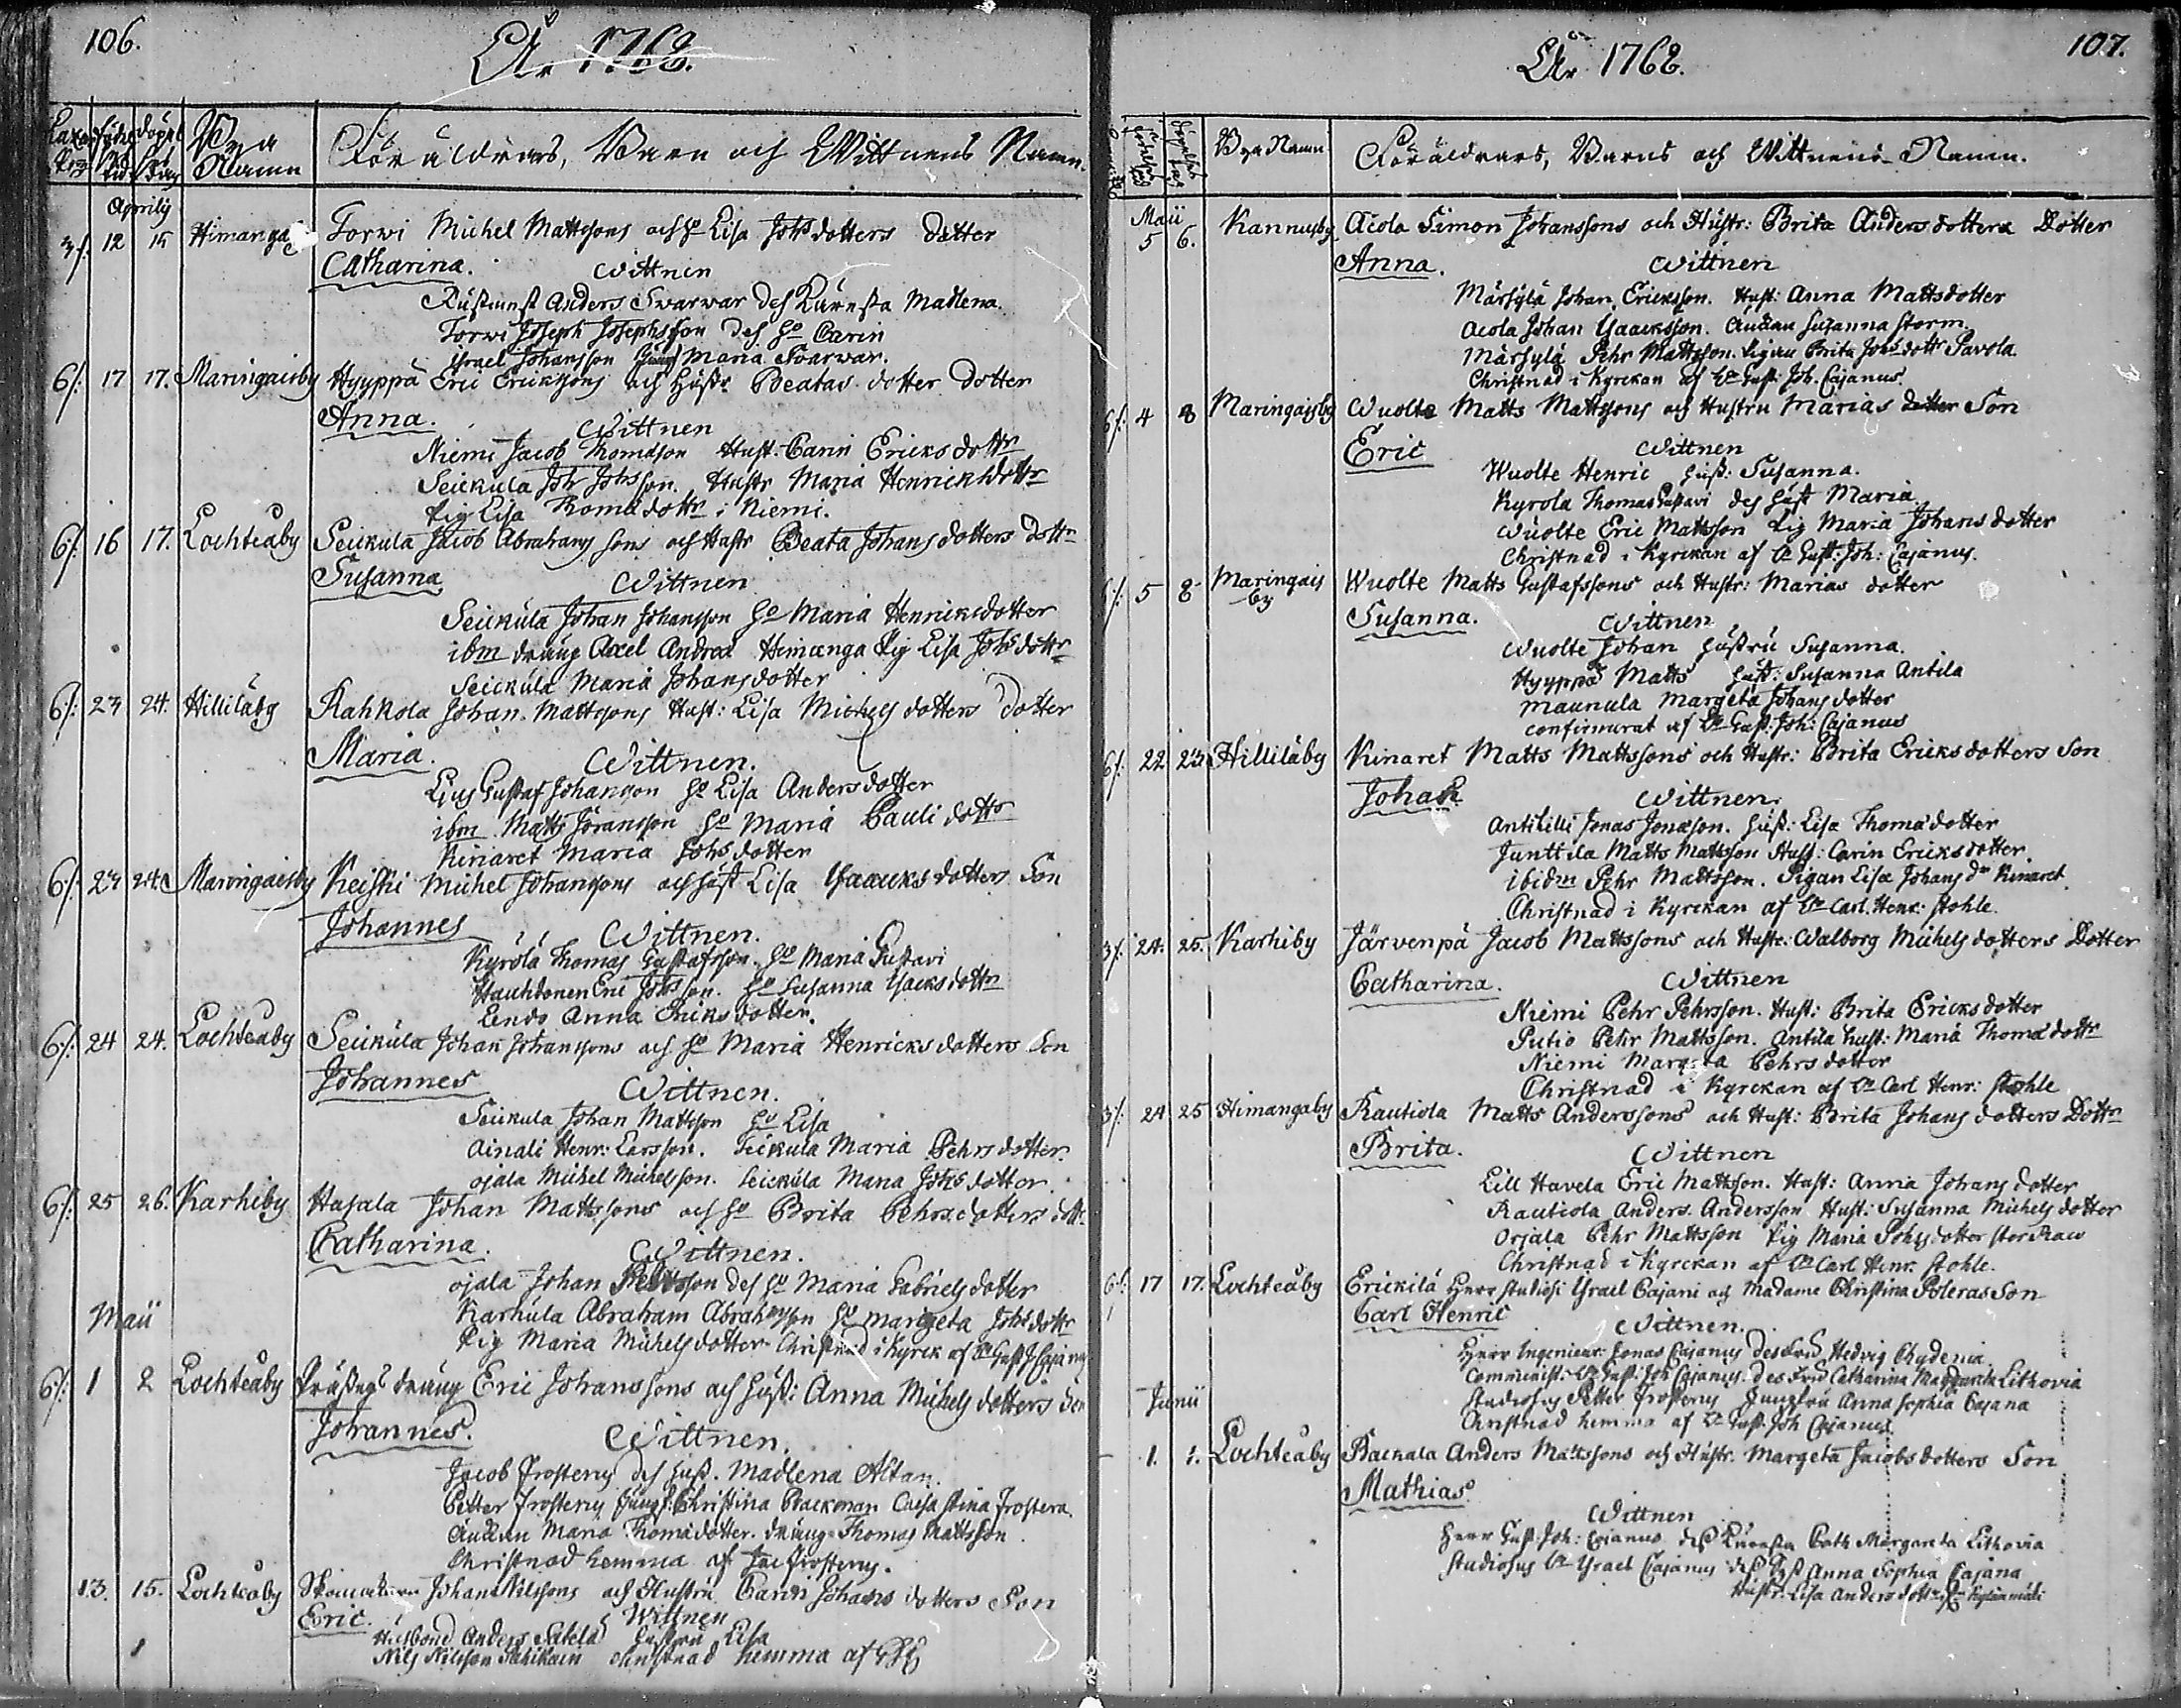 106.
År 1762.
Födel Döpel
Bya Namn
Föräldrars, Barn och Wittnens Namn.
Aprilis
3/: 12 15 Himanga Torwi Michel Mattssons och Ho Lisa Johsdotters dotter
Catharina. Wittnen
Rustmest Anders Swarwar des Käresta Madlena.
Torwi Joseph Josephsson des Ho Carin
Israel Johansson Maria Swarwar.
6/: 17 17. Maringaisby Hyyppä Eric Ericksons och Hustr Beatas dotter dotter
Anna. Wittnen
Niemi Jacob Thomasson Hust. Carin Ericks dottr
Seickula Joh Johsson. Hustr Maria Henrichsdottr
Pig Lisa Thomadottr i Niemi.
6/: 16 17. Lochteåby Seickula Jacob Abrahams sons och Hustr Beata Johans dotters dottr
Susanna Wittnen
Seickula Johan Johansson Ho Maria Henricksdotter
ibm dräng Axel Andrae Himanga Pig Lisa Johsdottr
Seickula Maria Johansdotter
6/: 23 24. Hilliläby Rahkola Johan Mattssons Hust: Lisa Michels dotters dotter
Maria. Wittnen.
Ljus Gustaf Johansson Ho Lisa Andersdotter
ibm Matts Jöransson Ho Maria Pauli dottr
Kinaret Maria Johsdotter
6/: 23 24. Maringaisby Keiski Michel Johanssons och Hust Lisa Isaacksdotters Son
Johannes Wittnen.
Kyrölä Thomas Gustafsson. Ho Maria Gustavi
Hauhtonen Eric Johsson. Ho Susanna Isacksdottr
Lendo Anna Ericksdotter.
6/: 24 24. Lochteåby Seickula Johan Johanssons och Ho Maria Henricksdotters Son
Johannes Wittnen.
Seickula Johan Mattsson Ho Lisa
Ainali Henr: Larsson. Seickula Maria Pehrsdotter.
ojala Michel Michelsson. Seickula Maria Johsdotter.
6/: 25 26. Karhiby Hasala Johan Mattssons och Ho Brita Pehrsdotters dottr
Catharina. Wittnen.
ojala Johan son des Ho Maria Gabrielsdotter
Karhula Abraham Abrahamsson Ho Margeta Johsdottr
Pig Maria Michelsdotter Christnad i Kyrck af Gust J Cajanus
Maii
6/: 1 2 Lochteåby dräng Eric Johanssons och Hust: Anna Michels dotters Son
Johannes. Wittnen.
Jacob Frosterus des Hust. Madlena Altan.
Petter Frosterus Jungf: Christina Backman Caisa Stina Frostera.
Änckan Maria Thomadotter. dräng Thomas Mattsson
Christnad hemma af Jac Frosterus.
13. 15. Lochteåby Johan Nilssons och Hustru Carin Johans dotters Son
Eric. Wittnen
Anders Hustru Lisa
Nils Nilsson christnad hemma af
107.
År 1762.
Bya Namn Föräldrars, Barns och Wittnens Namn.
Maii
5 6. Kannusby Aiola Simon Johanssons och Hustr: Brita Andersdotters Dotter
Anna. Wittnen
Märsylä Johan Ericksson. Hust: Anna Mattsdotter
Aiola Johan Isaacksson. Änckan Susanna Storm.
Märsylä Pehr Mattsson. Pigan Brita Johsdottr Pavola.
Christnad i Kyrckan af Hr Gust: Joh. Cajanus.
6/: 4 8 Maringaisby Wuolte Matts Mattssons och Hustru Marias dotter Son
Eric Wittnen
Wuolte Henric Hust: Susanna.
Kyrola Thomas Gustavi des Hust Maria.
Wuolte Eric Mattsson Pig Maria Johans dotter
Christnad i Kyrckan af Hr Gust: Joh: Cajanus.
6/: 5 8 Maringaisby Wuolte Matts Gustafssons och Hustr: Marias dotter
Susanna. Wittnen
Wuolte Johan Hustru Susanna.
Hyyppä Matts Hust: Susanna Antila
Maunula Margeta Johans dotter
confirmerat af Hr Gust: Joh: Cajanus
6/: 22 23 Hilliläby Kinaret Matts Mattssons och Hustr: Brita Ericksdotters Son
Johan Wittnen.
Antikilli Jonas Jonasson. Hust: Lisa Thomadotter
Junttila Matts Mattsson Hust: Carin Ericksdotter.
ibidm Pehr Mattsson. Pigan Lisa Johans dr Kinaret.
Christnad i Kyrckan af Hr Carl. Henr: Stohle.
3/: 24. 25. Karhiby Järvenpä Jacob Mattssons och Hustr: Walborg Michelsdotters Dotter
Catharina. Wittnen
Niemi Pehr Pehrsson. Hust: Brita Ericksdotter
Putio Pehr Mattsson. Antila Hust: Maria Thomadottr
Niemi Margeta Pehrs dotter
Christnad i Kyrckan af Hr Carl Henr: Stohle
3/: 24 25 Himangaby Rautiola Matts Anderssons och Hust: Brita Johans dotters Dottr
Brita. Wittnen
Lill Havela Eric Mattson. Hust: Anna Johans dotter
Rautiola Anders. Andersson Hust: Susanna Michels dotter
Orjala Pehr Mattsson Pig Maria Johsdotter
Christnad i Kyrckan af Hr Carl Henr. Stohle.
6/: 17 17. Lochteåby Erickilä Herr Studiosi Israel Cajani och Madame Christina Poleras Son
Carl Henric Wittnen.
Herr Ingenieur: Jonas Cajanus des Fru Hedvig Chydenia.
Comminist: Hr Gust: Joh Cajanus. des Fru Catharina Margareta Lithovia
Studiosus Petter Frosterus Jungfru Anna Sophia Cajana
Christnad hemma af Hr Gust. Joh Cajanus
Junii
1. 1. Lochteåby Backala Anders Mattssons och Hustr. Margeta Jacobs dotters Son
Mathias. Wittnen
Herr Gust: Joh: Cajanus des Käresta Cath Margareta Lithovia
Studiosus Hr Israel Cajanus des Anna Sophia Cajana
Hustr: Lisa Andersdottr